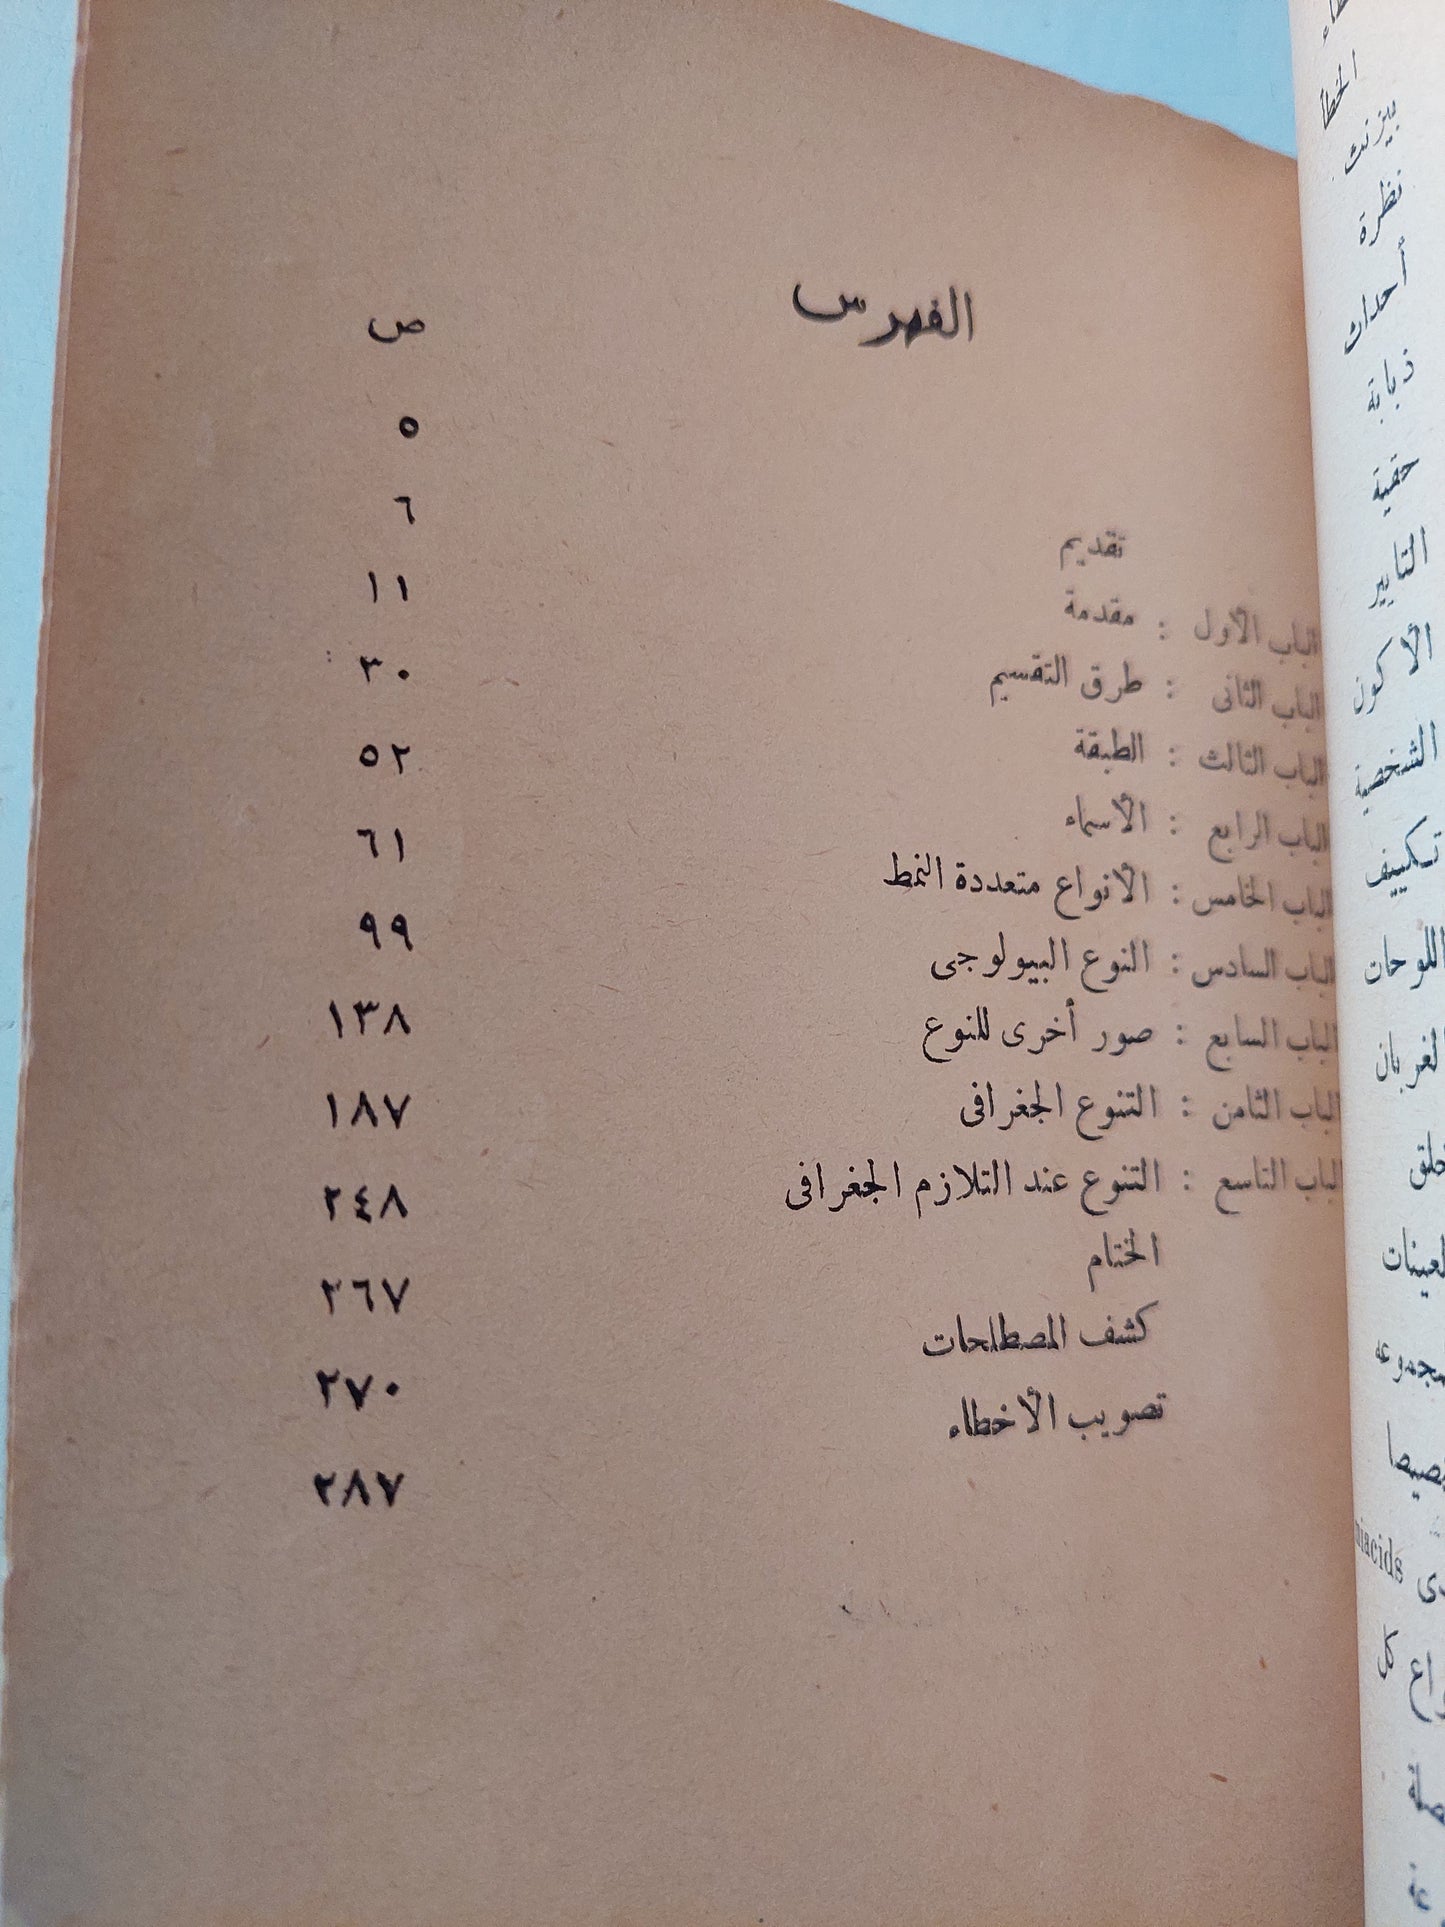 الفهرس
ص
تقديم ٥
الباب الأول : مقدمة ٦
الباب الثانى : طرق التقسيم ١١
الباب الثالث : الطبقة ٣٠
الباب الرابع : الأسماء ٥٢
الباب الخامس : الأنواع متعددة النمط ٦١
الباب السادس : النوع البيولوجى ٩٩
الباب السابع : صور أخرى للنوع ١٣٨
الباب الثامن : التنوع الجغرافى ١٨٧
الباب التاسع : التنوع عند التلازم الجغرافى ٢٤٨
الختام ٢٦٧
كشف المصطلحات ٢٧٠
تصويب الأخطاء ٢٨٧
الخطأ
بيزنت
نظرة
أحداث
ذبابة
حقبة
التايير
الأكون
الشخصية
تكييف
اللوحات
الغربان
كل